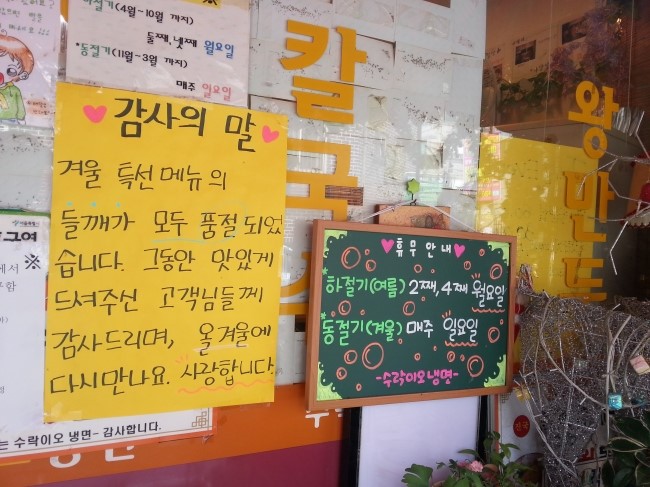 하절기(4월~10월 까지)
둘째,넷째 월요일
*동절기(11월~3월 까지)
매주 일요일
감사의 말
겨울 특선메뉴의
들깨가 모두 품절 되었
습니다. 그동안 맛있게
드셔주신 고객님들께
감사드리며, 올겨울에
다시만나요. 사랑합니다.
칼국수
왕만두
휴무안내
*하절기(여름) 2째,4째 월요일
*동절기(겨울) 매주 일요일
-수락이오냉면-
는 수락이오 냉면- 감사합니다.